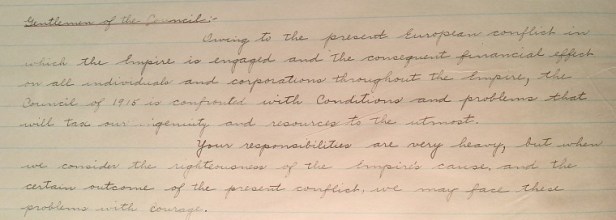 Gentlemen of the Council:-
Owing to the present European conflict in
which the Empire is engaged and the consequent financial effect
on all individuals and corporations throughout the Empire, the
Council of 1915 is confronted with Conditions and problems that
will tax our ingenuity and resources to the utmost.
Your responsibilities are very heavy, but when
we consider the righteousness of the Empire's cause, and the
certain outcome of the present conflict, we may face these
problems with courage.